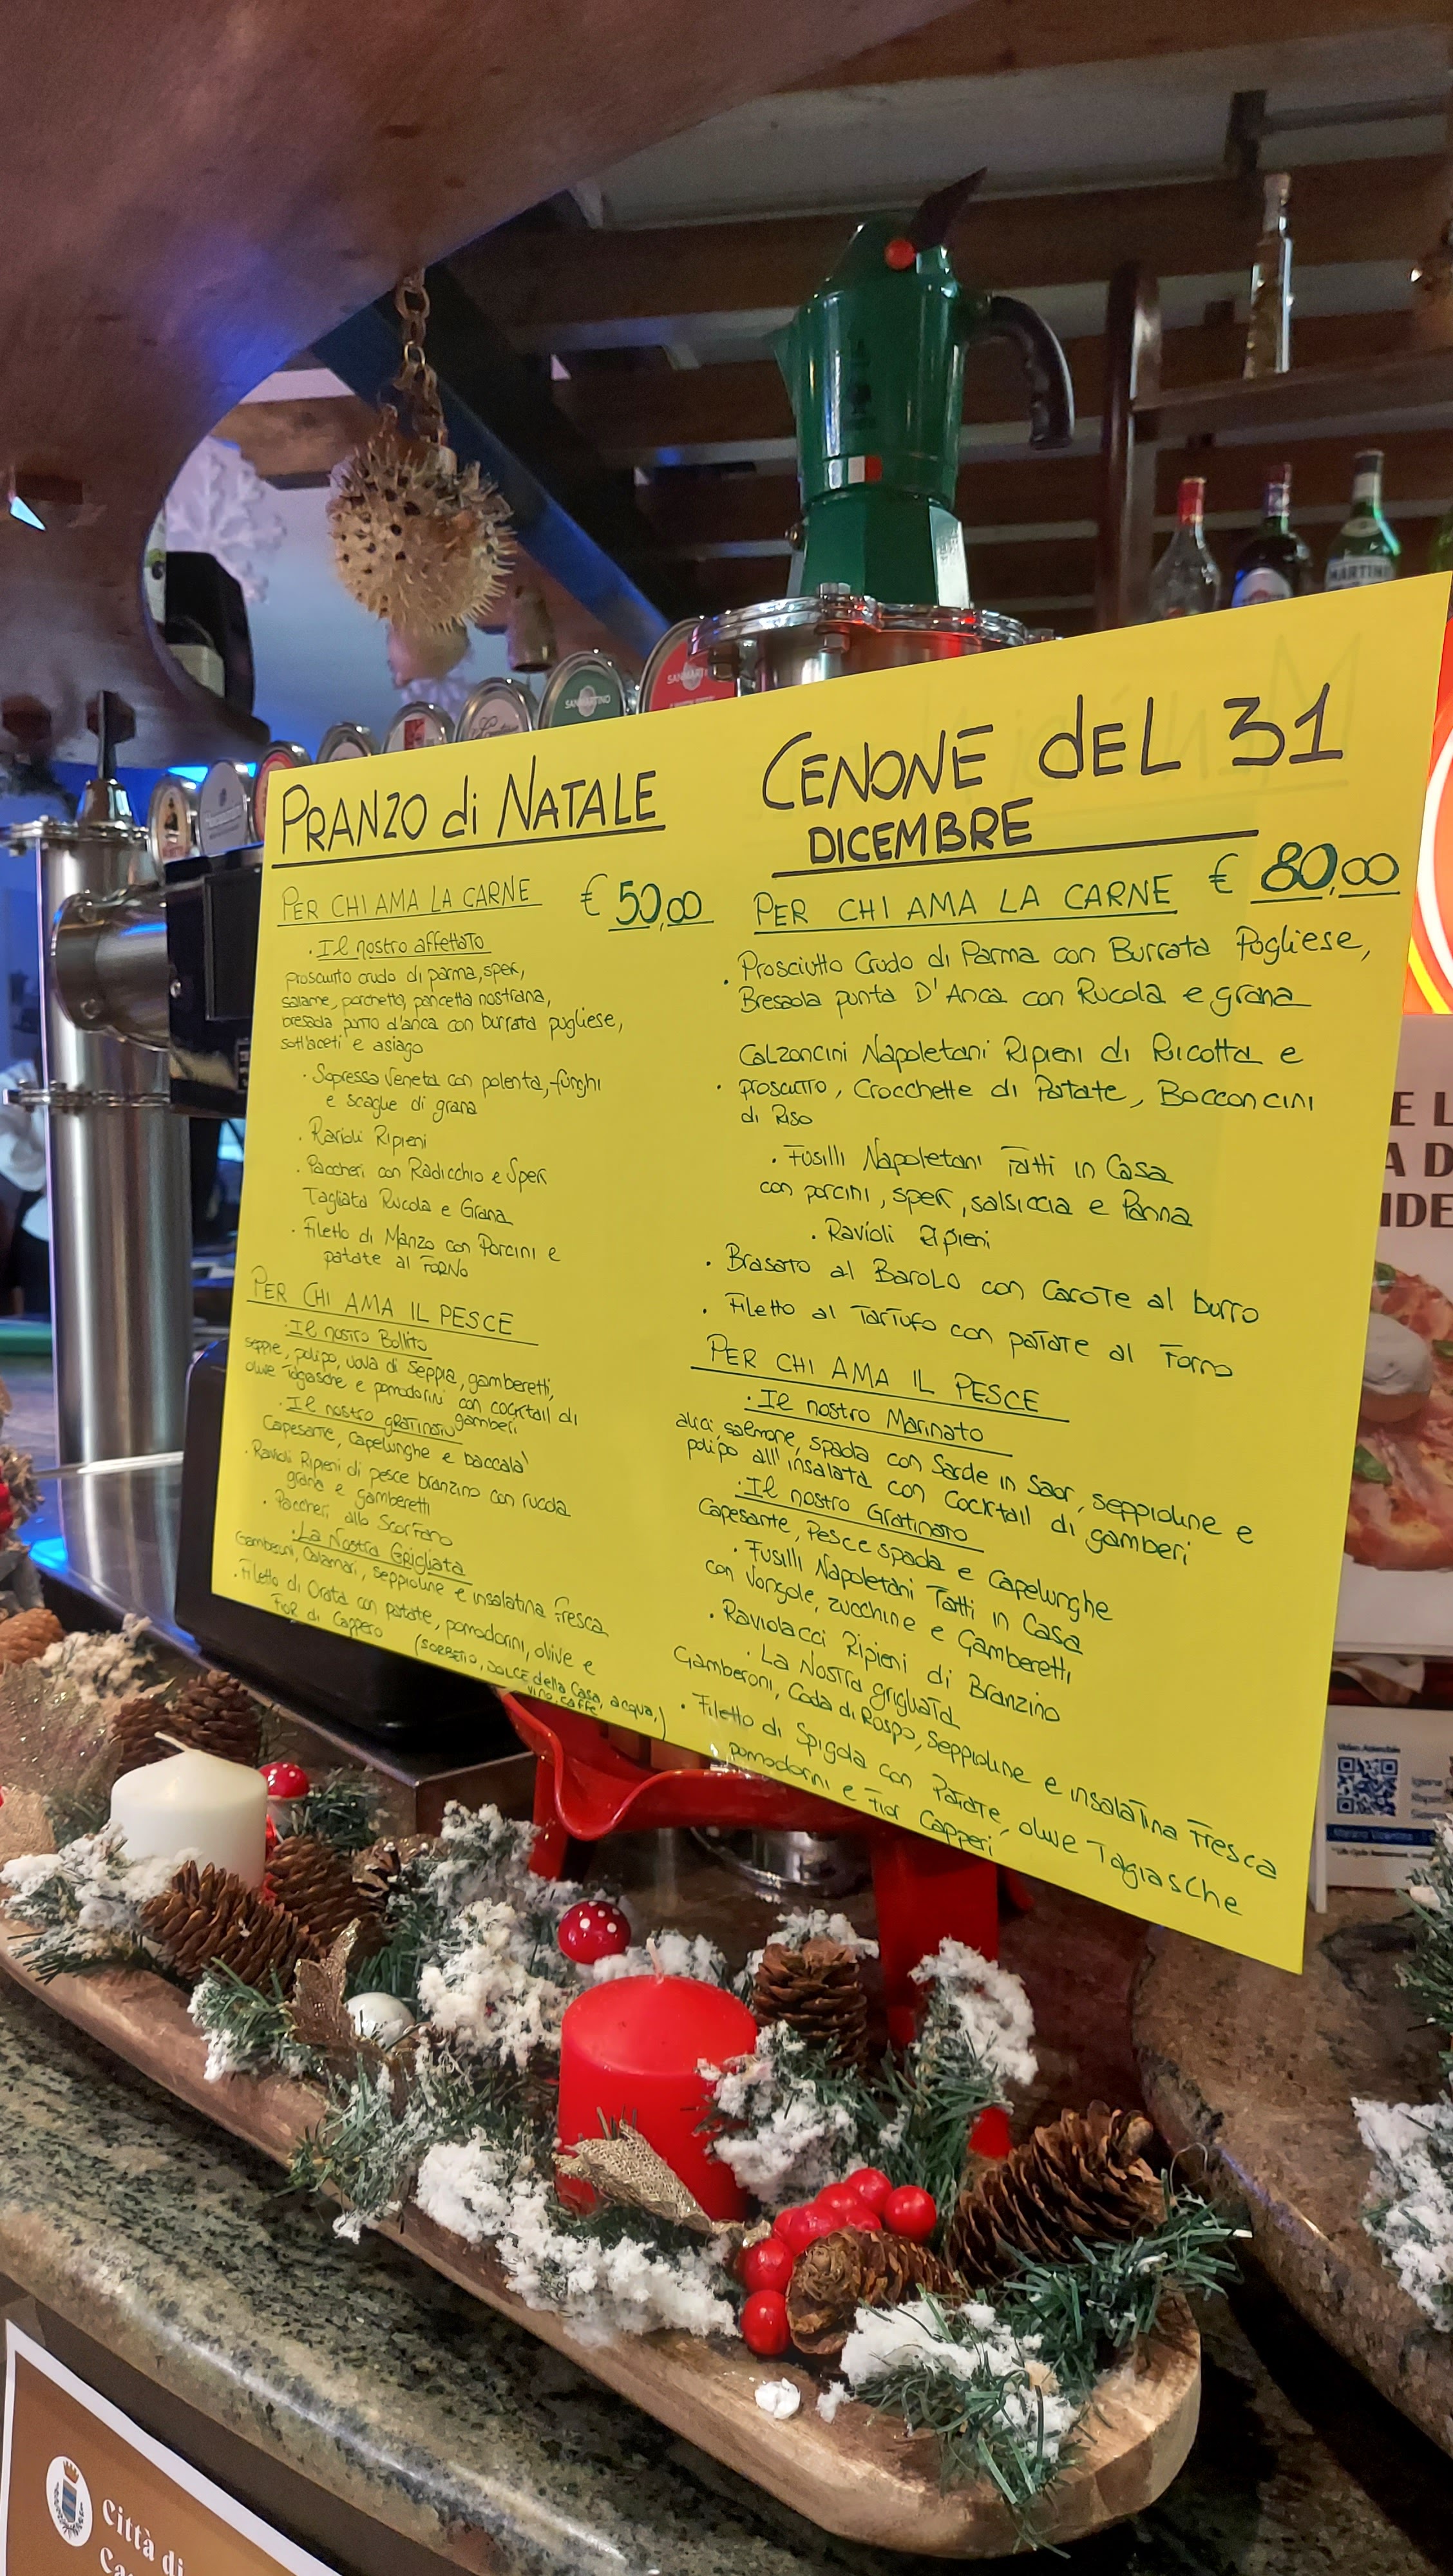 PRANZO di NATALE
PER CHI AMA LA CARNE € 50,00
· Il nostro affettato
prosciutto crudo di parma, spek,
salame, porchetta, pancetta nostrana,
bresaola punto d'anca con burrata pugliese,
sott'aceti e asiago
· Sopressa Veneta con polenta, funghi
e scaglie di grana
· Ravioli Ripieni
· Paccheri con Radicchio e Spek
Tagliata Rucola e Grana
· Filetto di Manzo con Porcini e
patate al forno
PER CHI AMA IL PESCE
· Il nostro Bollito
seppie, polipo, uova di seppia, gamberetti,
olive Tagiasche e pomodorini con cocktail di
gamberi
· Il nostro gratinato
Capesante, Capelunghe e baccalà
· Ravioli Ripieni di pesce branzino con rucola
grana e gamberetti
· Paccheri allo Scorfano
· La Nostra Grigliata
Gamberoni, Calamari, seppioline e insalatina fresca
· Filetto di Orata con patate, pomodorini, olive e
fior di Cappero
(SORBETTO, DOLCE della Casa, acqua,
vino, caffè)
CENONE dEL 31
DICEMBRE
PER CHI AMA LA CARNE € 80,00
· Prosciutto Crudo di Parma con Burrata Pugliese,
Bresaola punta D'Anca con Rucola e grana
· Calzoncini Napoletani Ripieni di Ricotta e
prosciutto, Crocchette di Patate, Bocconcini
di Riso
· Fusilli Napoletani Fatti in Casa
con porcini, spek, salsiccia e Panna
· Ravioli Ripieni
· Brasato al Barolo con Carote al burro
· Filetto al Tartufo con patate al Forno
PER CHI AMA IL PESCE
· Il nostro Marinato
alici, salmone, spada con Sarde in Saor, seppioline e
polipo all'insalata con Cocktail di gamberi
· Il nostro Gratinato
Capesante, Pesce spada e Capelunghe
· Fusilli Napoletani Fatti in Casa
con Vongole, zucchine e Gamberetti
· Raviolacci Ripieni di Branzino
· La Nostra grigliata
Gamberoni, Coda di Rospo, Seppioline e insalatina Fresca
· Filetto di Spigola con Patate, olive Tagiasche
pomodorini e Fior Capperi
SANMARTINO
MARTINI
Città di